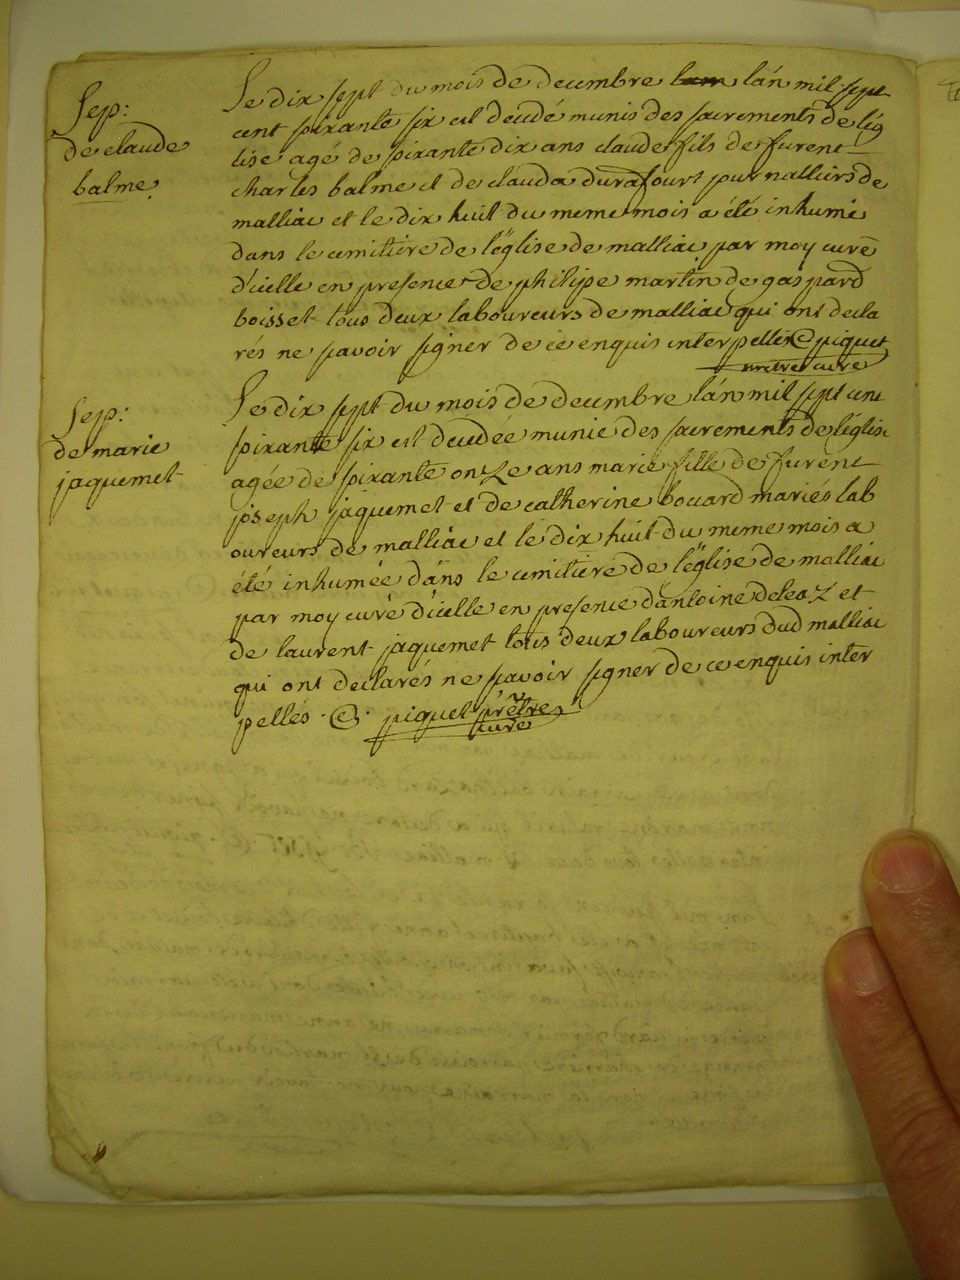 Sep:
de claude
balme.
Le dix sept du mois de decembre lan lán mil sept
cent soixante six est decedé munis des sacrements de lég
lise agé de soixante dix ans claude fils de furent
charles balme et de clauda durafourt journalliers de
malliac et le dix huit du meme mois a été inhumé
dans le cemitiere de l'église de malliac par moy curé
d'icelle en presence de philipe martin de gaspard
boisset tous deux laboureurs de malliac qui ont decla
rés ne savoir signer de ce enquis interpellés piquet
prêtre curé
Sep:
de marie
jaquemet
Le dix sept du mois de decembre lán mil sept cent
soixante six est decedée munie des sacrements de léglise
agée de soixante onze ans marie fille de furent
joseph jaquemet et de catherine bouard mariés lab
oureurs de malliac et le dix huit du meme mois a
été inhumée dans le cemitiere de l'église de malliac
par moy curé d'icelle en presence d'antoine deleaz et
de laurent jaquemet tous deux laboureurs dud malliac
qui ont declarés ne savoir signer de ce enquis inter
pellés. piquet prêtre
curé